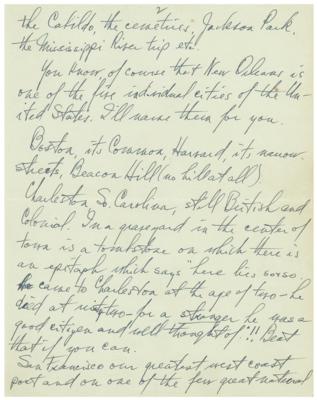 2
the Cabildo, the cemeteries, Jackson Park,
the Mississippi River trip etc.
You know, of course that New Orleans is
one of the five individual cities of the Un-
ited States. I'll name them for you.
Boston, its Common, Harvard, its narrow
streets, Beacon Hill (no hill at all)
Charleston So. Carolina, still British and
Colonial. In a graveyard in the center of
town is a tombstone on which there is
an epitaph which says "here lies so & so.
he came to Charleston at the age of two - he
died at ninety two - for a stranger he was a
good citizen and well thought of"!! Beat
that if you can.
San Francisco our greatest west coast
port and on one of the few great national